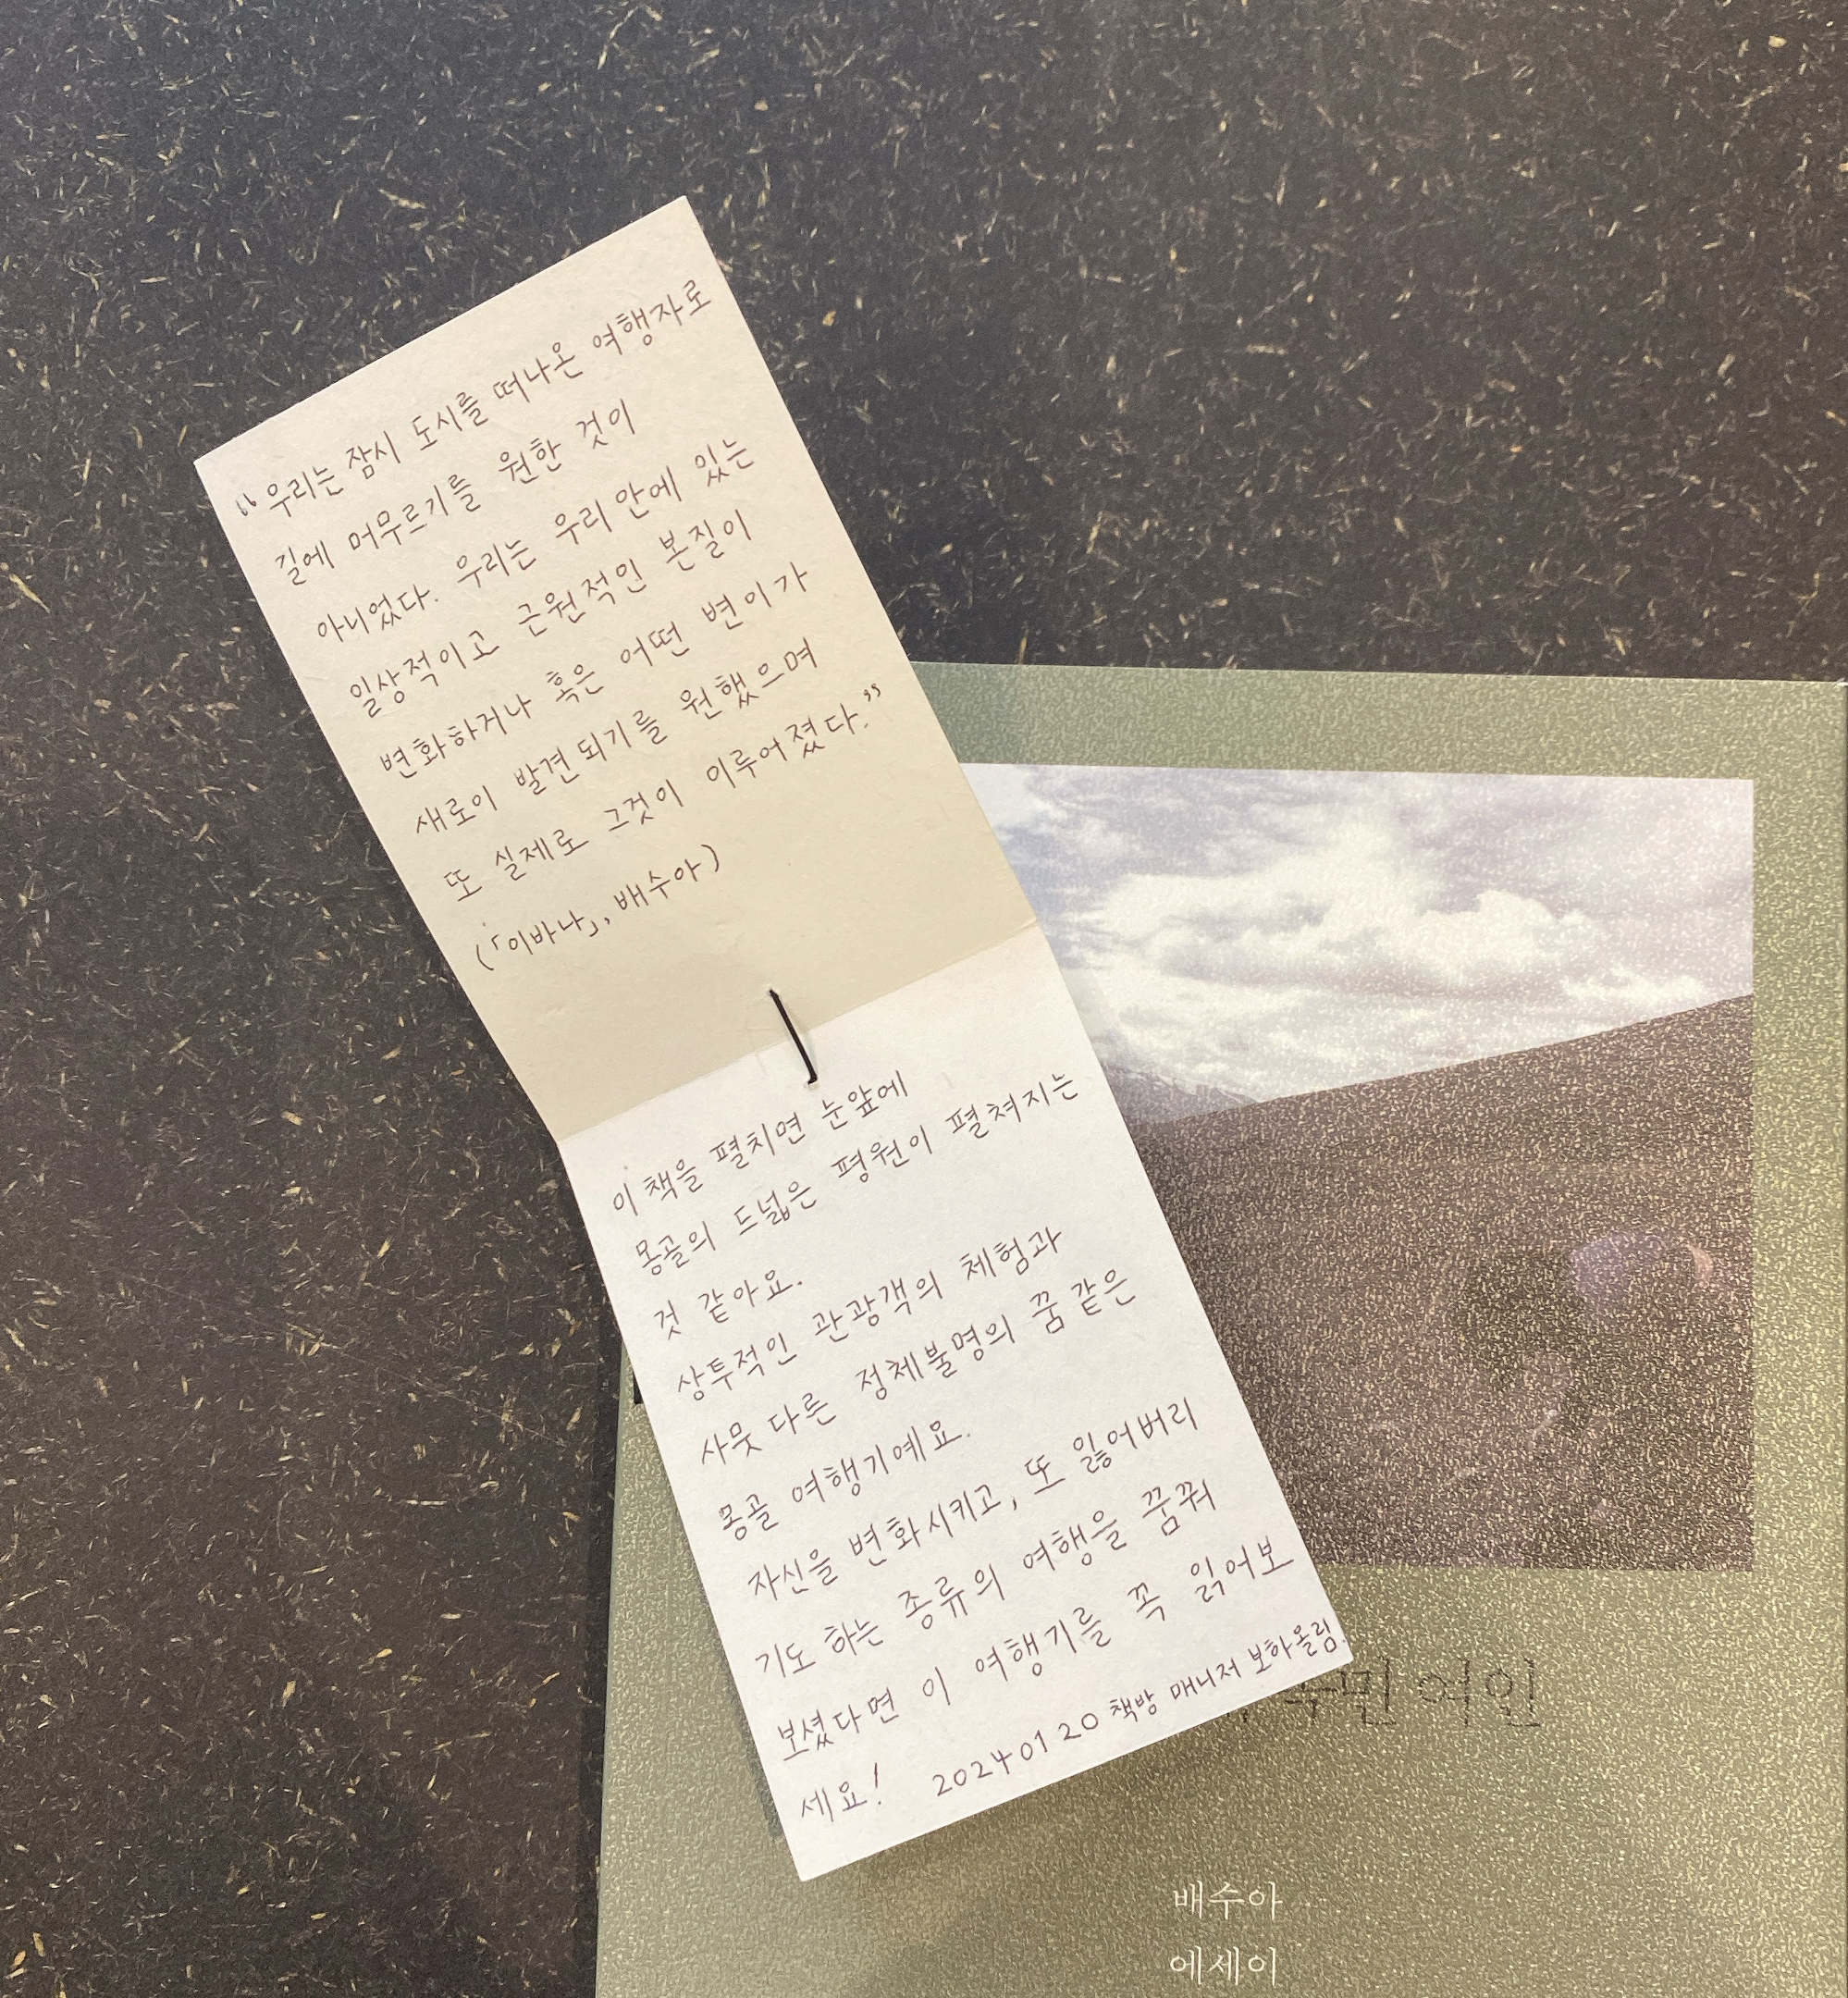 “우리는 잠시 도시를 떠나온 여행자로
길에 머무르기를 원한 것이
아니었다. 우리는 우리 안에 있는
일상적이고 근원적인 본질이
변화하거나 혹은 어떤 변이가
새로이 발견되기를 원했으며
또 실제로 그것이 이루어졌다.”
(「이바나」, 배수아)
이 책을 펼치면 눈앞에
몽골의 드넓은 평원이 펼쳐지는
것 같아요.
상투적인 관광객의 체험과
사뭇 다른 정체불명의 꿈 같은
몽골 여행기예요.
자신을 변화시키고, 또 잃어버리
기도 하는 종류의 여행을 꿈꿔
보셨다면 이 여행기를 꼭 읽어보
세요! 2024 01 20 책방 매니저 보하 올림.
여인
배수아
에세이